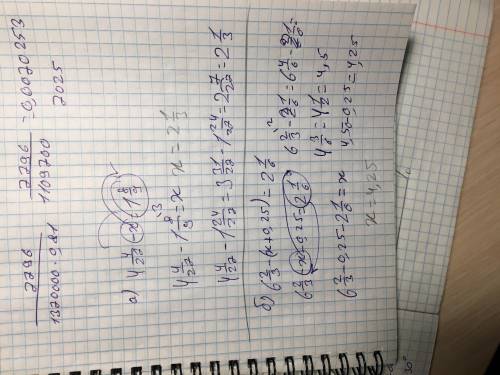 2296
1320000·0,81
2296
1109700
=0,0020253
2025
а) 4 4/27 - x = 1 8/9
4 4/27 - 1 8/9 = x x = 2 1/3
4 4/27 - 1 24/27 = 3 31/27 - 1 24/27 = 2 7/27 = 2 1/3
б) 6 2/3 - (x+0,25) = 2 1/6
6 2/3 - x + 0,25 = 2 1/6
6 2/3 - 0,25 - 2 1/6 = x
6 2/3 - 2 1/6 = 6 4/6 - 2 1/6 =
4 3/6 = 4 1/2 = 4,5
4,50 - 0,25 = 4,25
x = 4,25